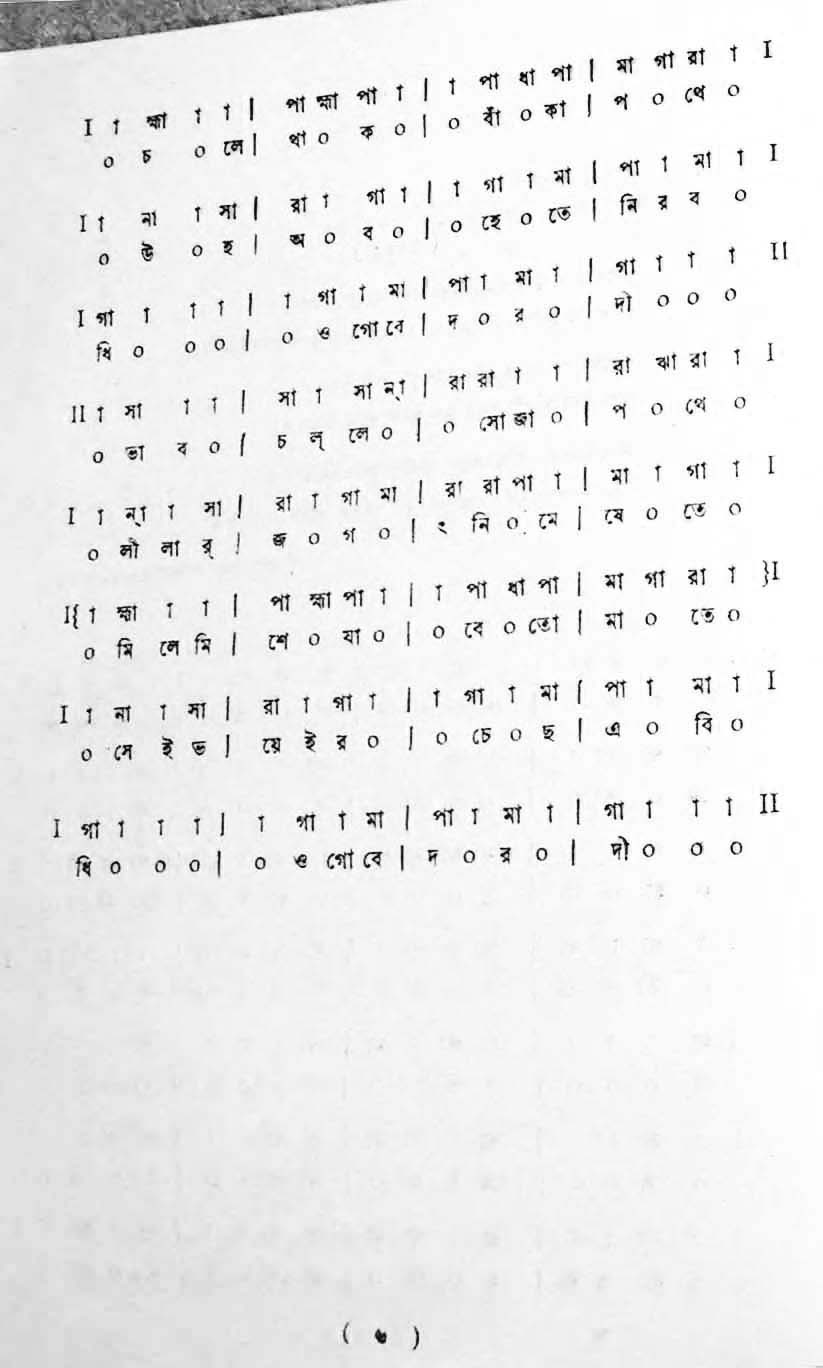 I া হ্মা া া | পা হ্মা পা া | া পা ধা পা | মা গা রা া I
০ চ ০ লে | থা ০ ক ০ | ০ বাঁ ০ কা | প ০ থে ০
I া না া সা | রা া গা া | া গা া মা | পা া মা া I
০ উ ০ হ | অ ০ ব ০ | ০ হে ০ তে | নি র ব ০
I গা া া া | া গা া মা | পা া মা া | গা া া া II
ধি ০ ০ ০ | ০ ও গো বে | দ ০ র ০ | দী ০ ০ ০
II া সা া া | সা া সা ন্‌া | রা রা া া | রা ঝা রা া I
০ ভা ব ০ | চ ল্ লে ০ | ০ সো জা ০ | প ০ থে ০
I া ন্‌া া সা | রা া গা মা | রা রা পা া | মা া গা া I
০ লী লা র্ | জ ০ গ ০ | ং নি ০ মে | ষে ০ তে ০
I{ া হ্মা া া | পা হ্মা পা া | া পা ধা পা | মা গা রা া }I
০ মি লে মি | শে ০ যা ০ | ০ বে ০ তো | মা ০ তে ০
I া না া সা | রা া গা া | া গা া মা | পা া মা া I
০ সে ই ভ | য়ে ই র ০ | ০ চে ০ ছ | এ ০ বি ০
I গা া া া | া গা া মা | পা া মা া | গা া া া II
ধি ০ ০ ০ | ০ ও গো বে | দ ০ র ০ | দী ০ ০ ০
( ৬ )